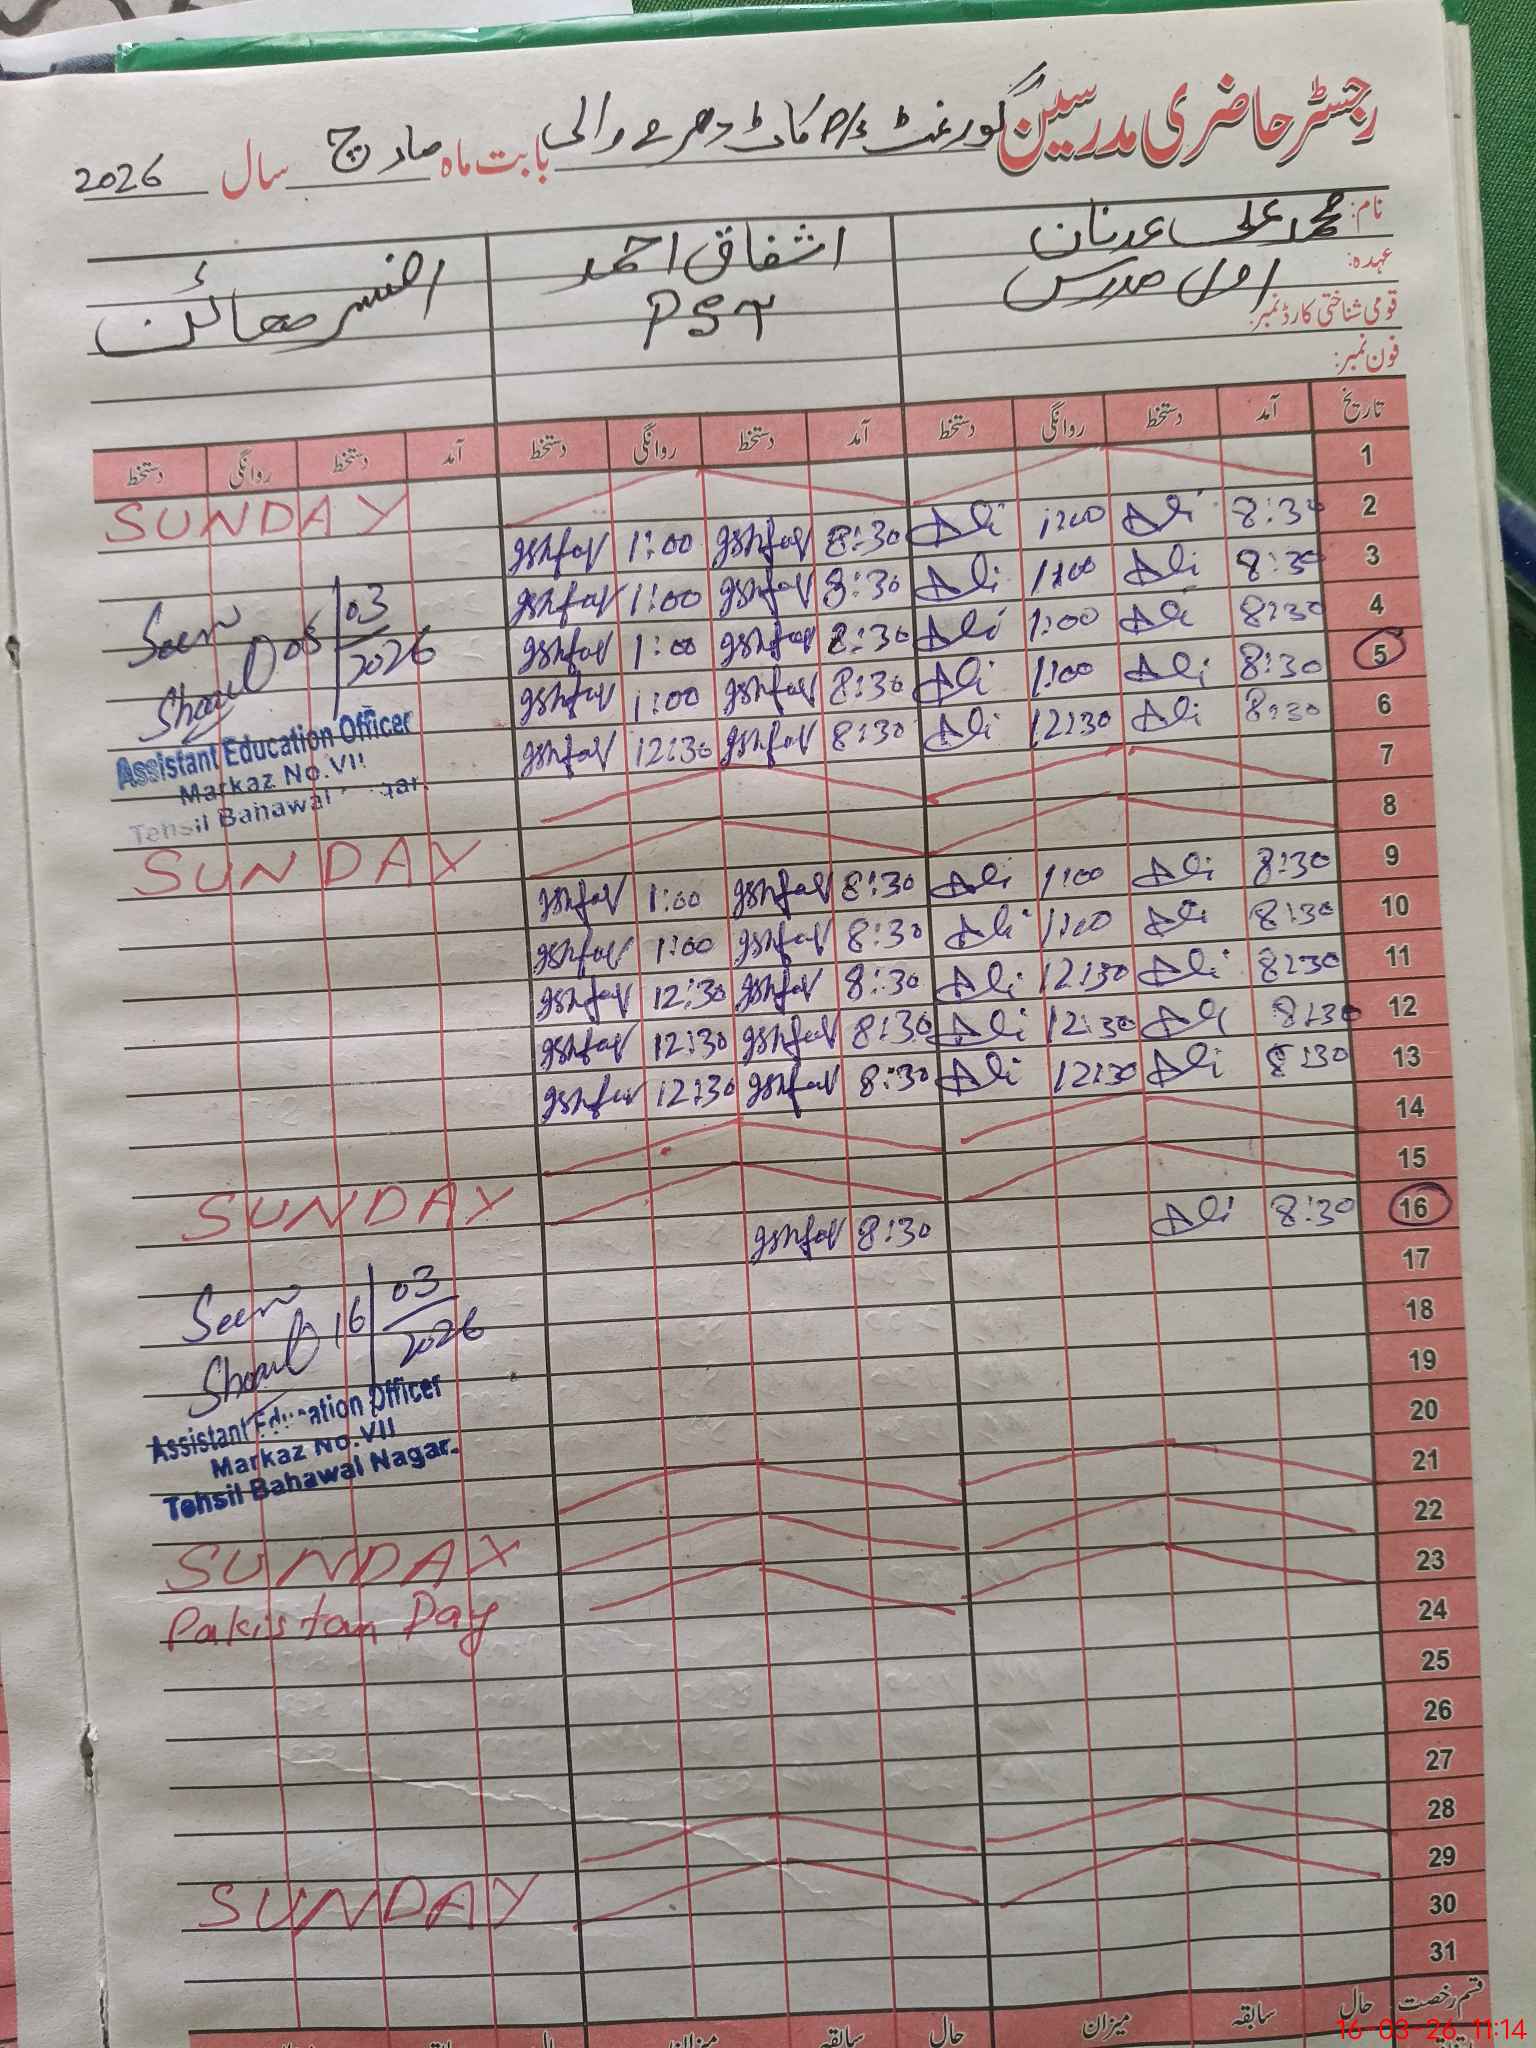 رجسٹر حاضری مدرسین گورنمنٹ P/S کاٹ دھرمے والی بابت ماہ مارچ سال 2026
نام: محمد علی عدنان اشفاق احمد افسر معائن
عہدہ: اول مدرس PST
قومی شناختی کارڈ نمبر:
فون نمبر:
تاریخ آمد دستخط روانگی دستخط آمد دستخط روانگی دستخط آمد دستخط روانگی دستخط
1 SUNDAY
2 8:30 Ali 1:00 Ali 8:30 Ishfaq 1:00 Ishfaq
3 8:30 Ali 1:00 Ali 8:30 Ishfaq 1:00 Ishfaq
4 8:30 Ali 1:00 Ali 8:30 Ishfaq 1:00 Ishfaq
5 8:30 Ali 1:00 Ali 8:30 Ishfaq 1:00 Ishfaq
6 8:30 Ali 12:30 Ali 8:30 Ishfaq 12:30 Ishfaq
Seen
05/03/2026
Assistant Education Officer
Markaz No.VII
Tehsil Bahawal Nagar.
7
8 SUNDAY
9 8:30 Ali 1:00 Ali 8:30 Ishfaq 1:00 Ishfaq
10 8:30 Ali 1:00 Ali 8:30 Ishfaq 1:00 Ishfaq
11 8:30 Ali 12:30 Ali 8:30 Ishfaq 12:30 Ishfaq
12 8:30 Ali 12:30 Ali 8:30 Ishfaq 12:30 Ishfaq
13 8:30 Ali 12:30 Ali 8:30 Ishfaq 12:30 Ishfaq
14
15 SUNDAY
16 8:30 Ali 8:30 Ishfaq
Seen
16/03/2026
Assistant Education Officer
Markaz No.VII
Tehsil Bahawal Nagar.
17
18
19
20
21
22 SUNDAY
23 Pakistan Day
24
25
26
27
28
29 SUNDAY
30
31
قسم رخصت حال سابقہ میزان حال سابقہ میزان
16-03-26 11:14